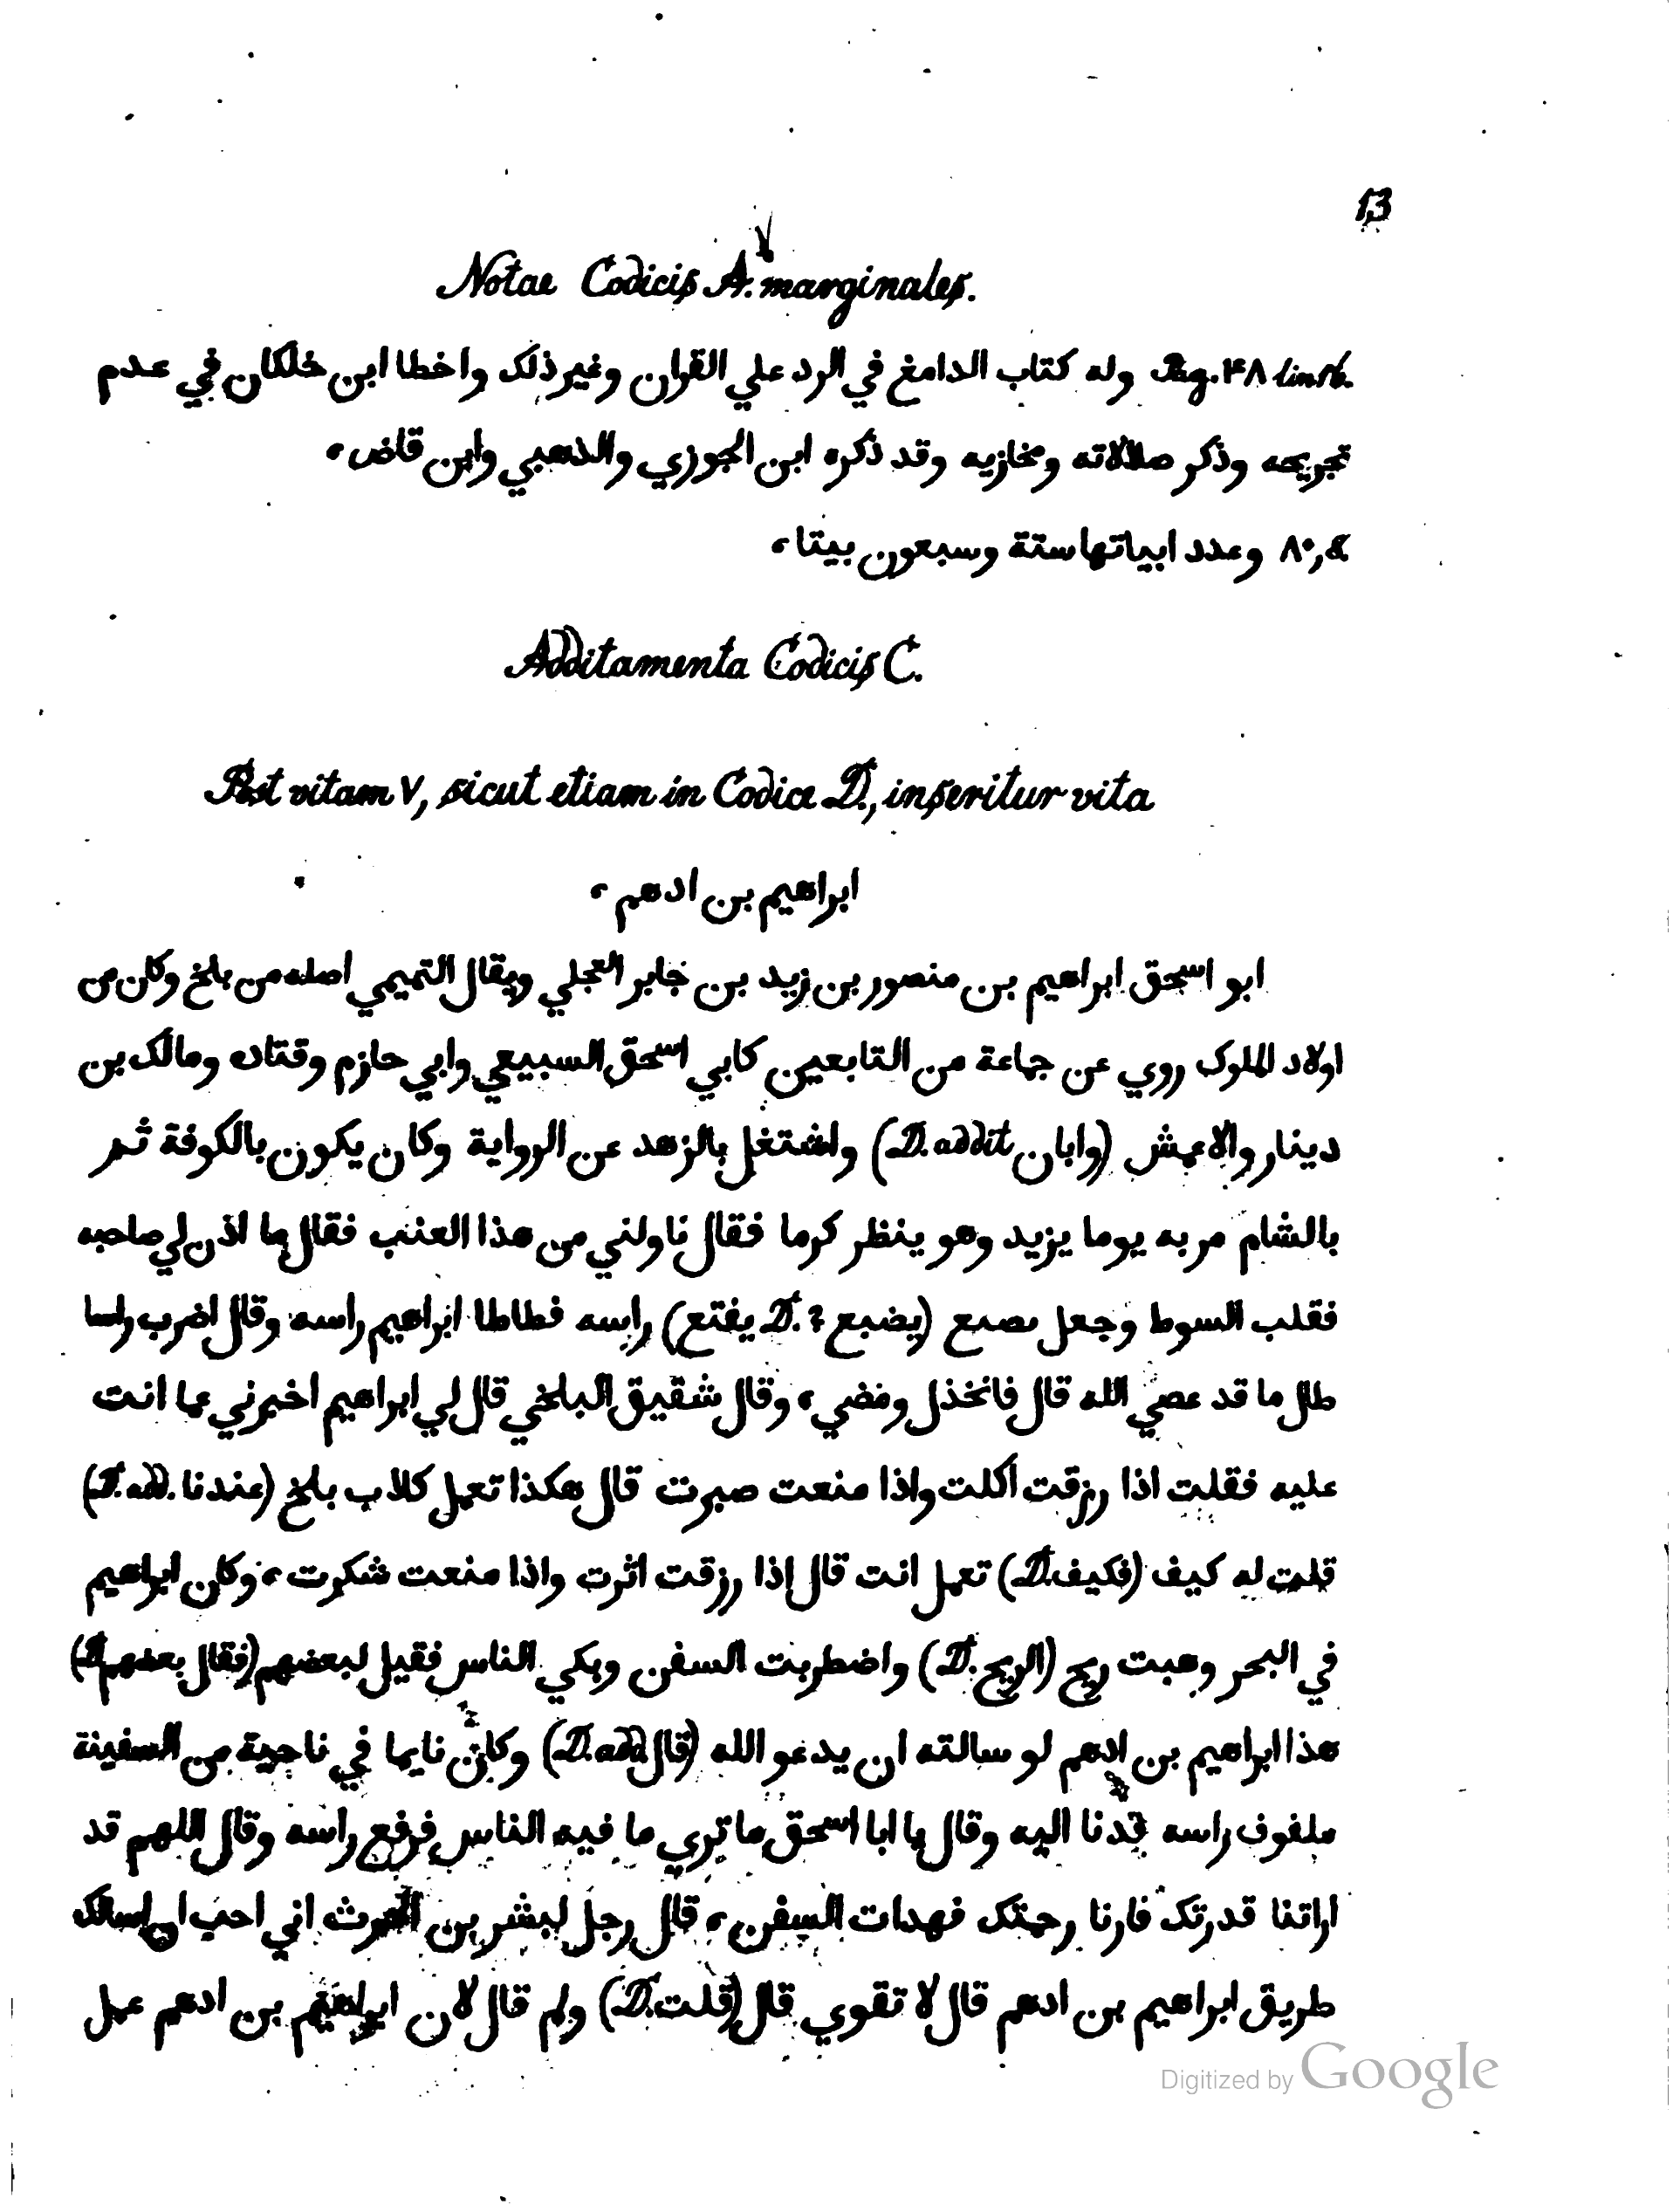 13
Notae Codicis A. marginales.
Pag. ۴۸ lin. وله كتاب الدامغ في الرد علي القران وغير ذلك واخطا ابن خلكان في عدم
تجريحه وذكر ضلالاته ومخازيه وقد ذكره ابن الجوزي والذهبي وابن قاض،
۸۰, وعدد ابياتها ستة وسبعون بيتا،
Additamenta Codicis C.
Post vitam V, sicut etiam in Codice D., inseritur vita
ابراهيم بن ادهم،
ابو اسحق ابراهيم بن منصور بن زيد بن جابر العجلي ويقال التميمي اصله من بلخ وكان من
اولاد الملوك روي عن جماعة من التابعين كابي اسحق السبيعي وابي حازم وقتاده ومالك بن
دينار والاعمش (وابان D. addit) واشتغل بالزهد عن الرواية وكان يكون بالكوفة ثم
بالشام مر به يوما يزيد وهو ينظر كرما فقال ناولني من هذا العنب فقال ما اذن لي صاحبه
فقلب السوط وجعل يصبع (يضبع ? D. يفتع) راسه فطاطا ابراهيم راسه وقال اضرب راسا
طال ما قد عصي الله قال فانخذل ومضي، وقال شقيق البلخي قال لي ابراهيم اخبرني عما انت
عليه فقلت اذا رزقت اكلت واذا منعت صبرت قال هكذا تعمل كلاب بلخ (عندنا D. add.)
قلت له كيف (فكيف D.) تعمل انت قال إذا رزقت اثرت واذا منعت شكرت، وكان ابراهيم
في البحر وهبت ريح (الريح D.) واضطربت السفن وبكي الناس فقيل لبعضهم (فقال بعضهم D.)
هذا ابراهيم بن ادهم لو سالته ان يدعو الله (قال D. add) وكان نايما في ناحية من السفينة
ملفوف راسه فدنا اليه وقال يا ابا اسحق ما تري ما فيه الناس فرفع راسه وقال اللهم قد
اراتنا قدرتك فارنا رحمتك فهدات السفن، قال رجل لبشر بن الحرث اني احب ان اسالك
طريق ابراهيم بن ادهم قال لا تقوي قال (قلت D.) ولم قال لان ابراهيم بن ادهم عمل
Digitized by Google